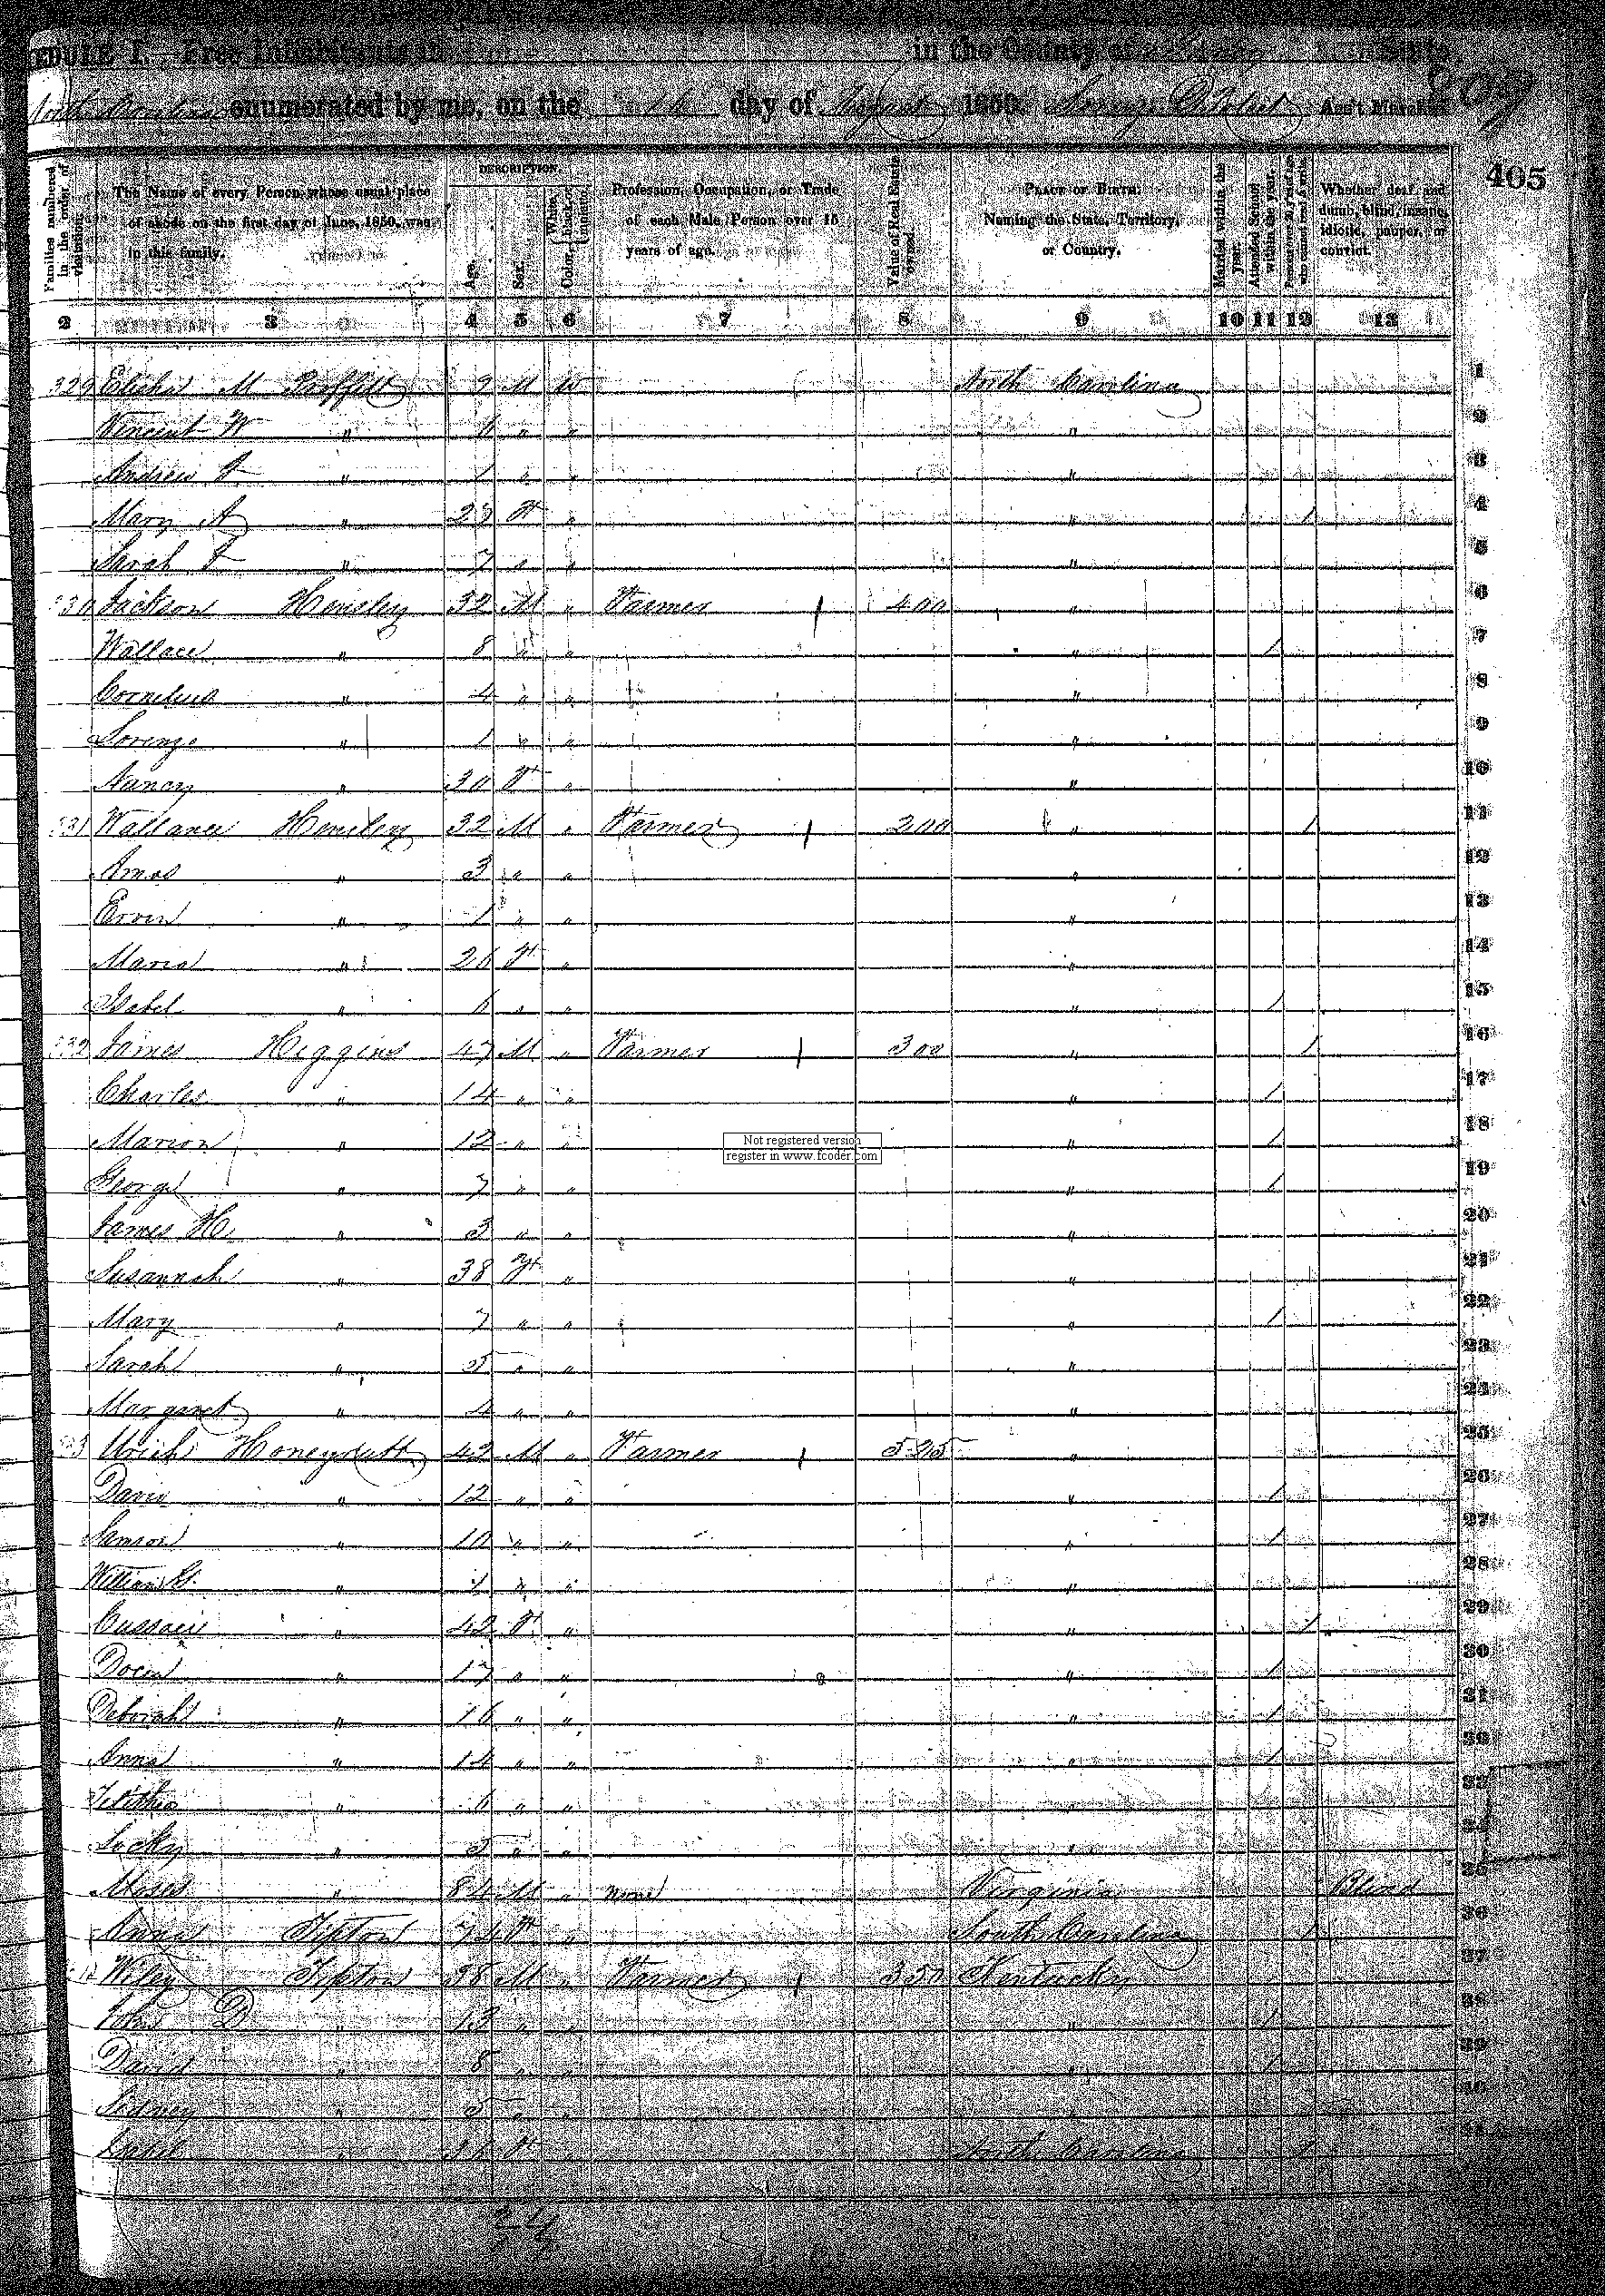 EDULE I. Free Inhabitants in in the County of Yancy State
North Carolina enumerated by me, on the day of August 1850. Ass't Marshal
405
Families numbered in the order of visitation.
The Name of every Person whose usual place of abode on the first day of June, 1850, was in this family.
DESCRIPTION.
Age.
Sex.
Color, White, black, or mulatto.
Profession, Occupation, or Trade of each Male Person over 15 years of age.
Value of Real Estate owned.
PLACE OF BIRTH. Naming the State, Territory, or Country.
Married within the year.
Attended School within the year.
Persons over 20 y'rs of age who cannot read & write.
Whether deaf and dumb, blind, insane, idiotic, pauper, or convict.
2 3 4 5 6 7 8 9 10 11 12 13
329 Elisha M Proffitt 9 M W North Carolina 1
Vincent W " 6 " " " 2
Andrew " 1 " " " 3
Mary A " F " " 1 4
Sarah " 7 " " " 5
330 Jackson Hensley 32 M " Farmer 400 " 6
Wallace " 8 " " " 1 7
Cornelius " 4 " " " 8
Lorenzo " 1 " " " 9
Nancy " 30 F " " 10
331 Wallance Hensley 32 M " Farmer 200 " 1 11
Amos " 3 " " " 12
Ervin " 1 " " " 13
Maria " 26 F " " 14
Isabel " 6 " " " 1 15
332 James Higgins 47 M " Farmer 300 " 1 16
Charles " 14 " " " 1 17
Marion " 12 " " " 1 18
Not registered version
register in www.fcoder.com
George " 7 " " " 1 19
James H " 3 " " " 20
Susannah " 38 F " " 21
Mary " 7 " " " 1 22
Sarah " 5 " " " 23
Margaret " 4 " " " 24
Uriah Honeycutt 42 M " Farmer 525 " 25
David " 12 " " " 1 26
Samson " 10 " " " 1 27
William G. " " " " 28
" 42 F " " 1 29
" 17 " " " 1 30
Deborah " 16 " " " 1 31
Anna " 14 " " " 1
" 6 " " "
Locky " 5 " " "
Moses " 84 M " none Virginia Blind 35
Anna Tipton 74 F " South Carolina 1 36
Wiley Tipton 38 M " Farmer 350 Kentucky 37
John D " 13 " " " 1 38
David " 8 " " " 1 39
Sidney " 5 " "
F North Carolina 1